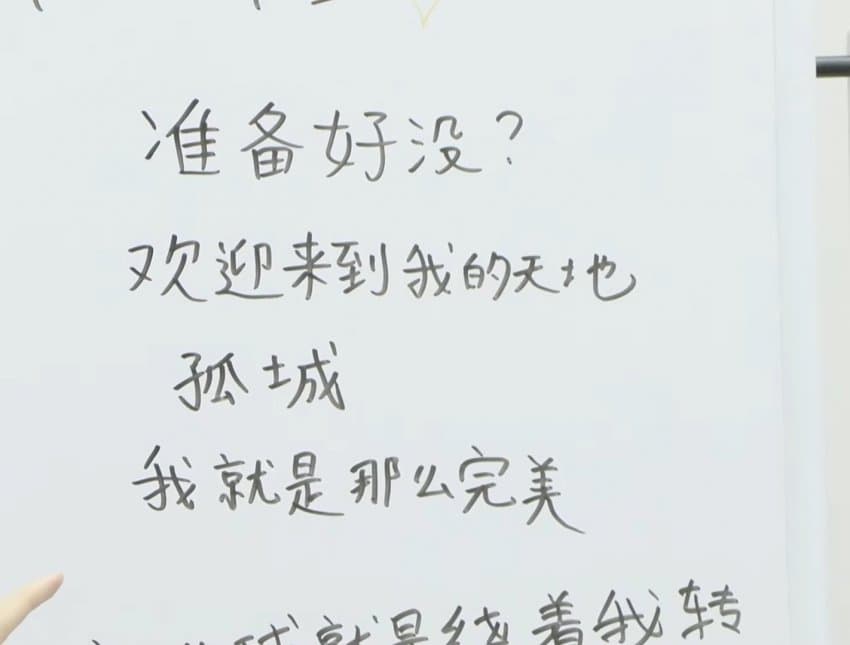 准备好没？
欢迎来到我的天地
孤城
我就是那么完美
球就是绕着我转